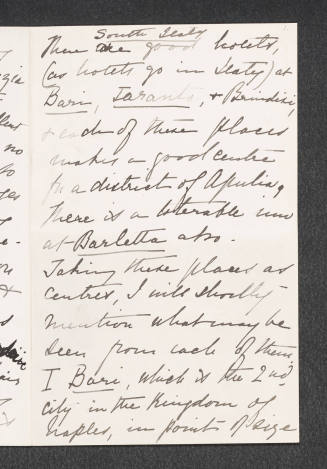 South Italy
There are good hotels,
(as hotels go in Italy) at
Bari, Taranto, & Brindisi,
& each of these places
makes a good centre
for a district of Apulia,
There is a tolerable inn
at Barletta also.
Taking these places as
centres, I will shortly
mention what may be
seen from each of them.
I Bari, which is the 2nd
city in the Kingdom of
Naples, in point of size